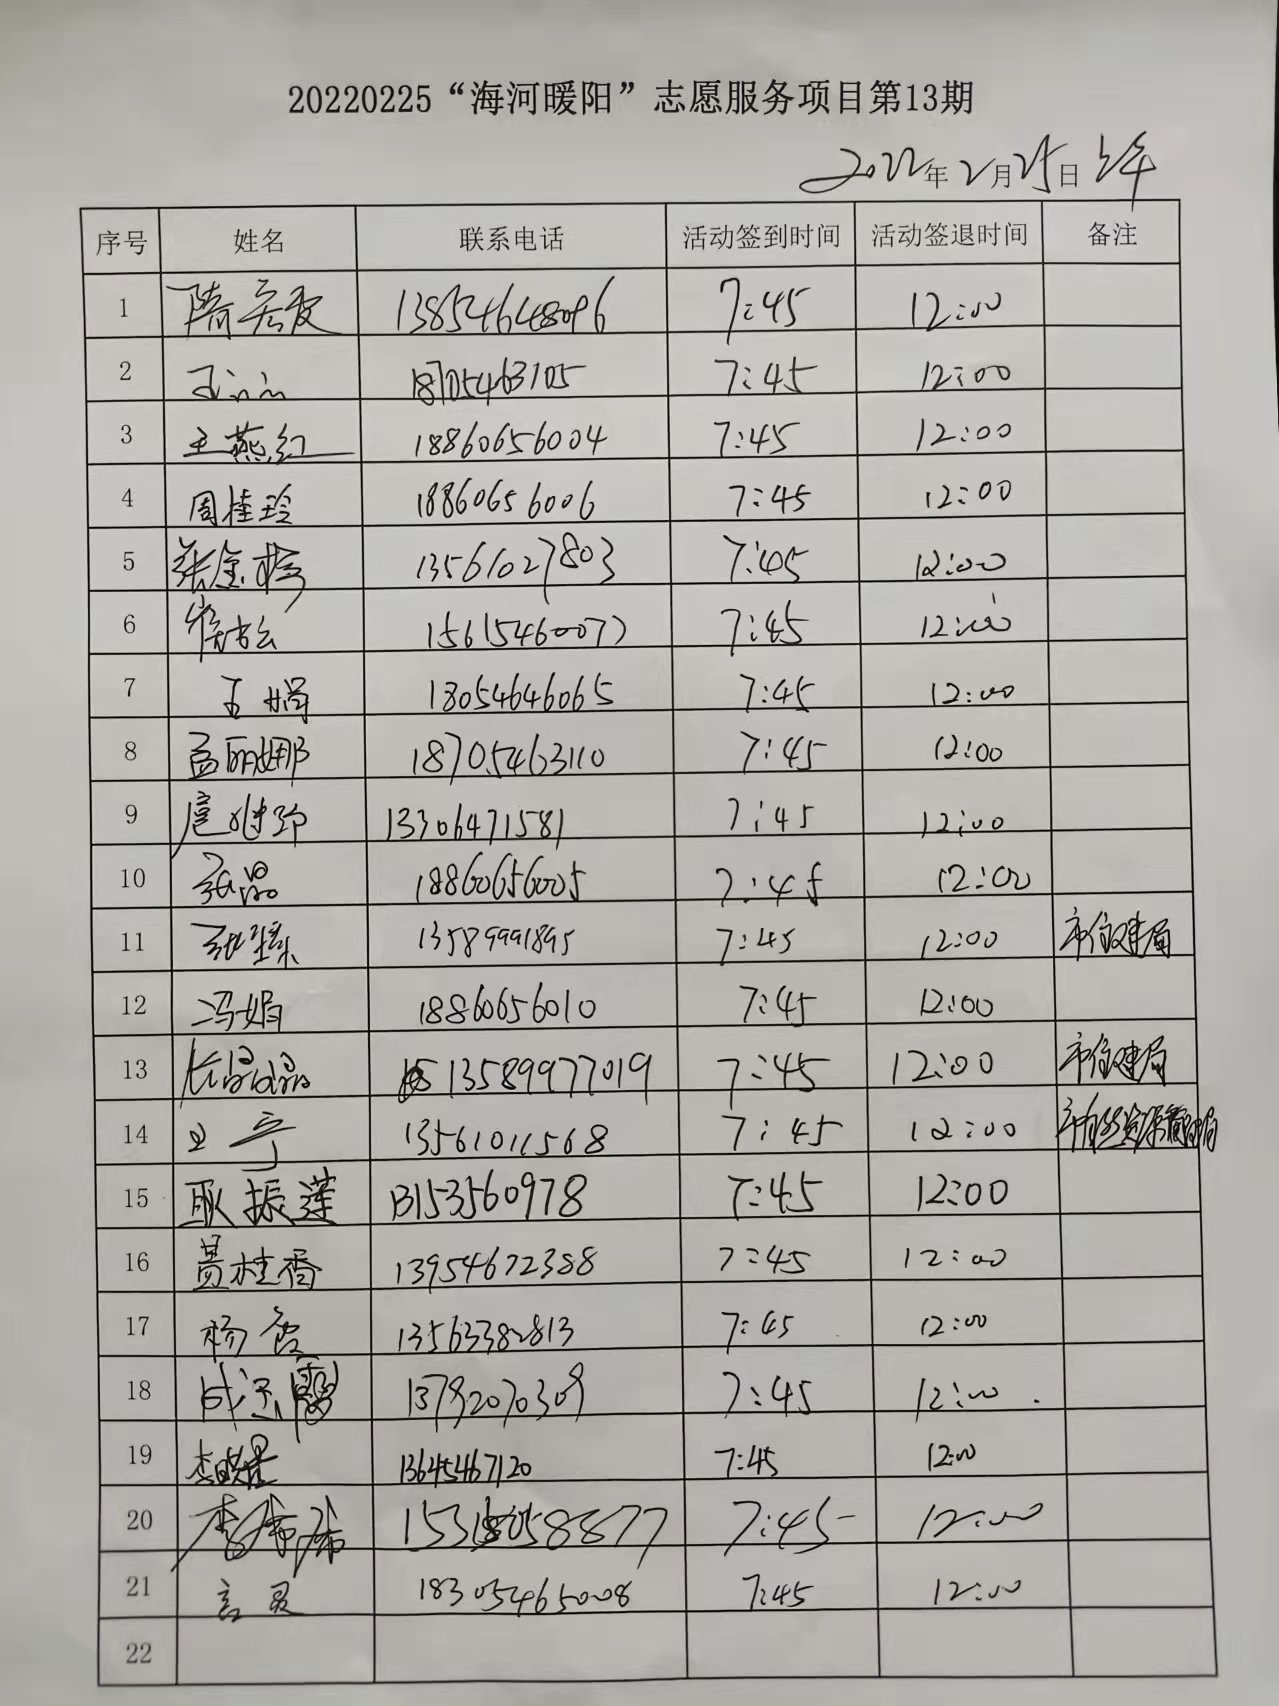 20220225“海河暖阳”志愿服务项目第13期
2022年2月25日 上午
序号 姓名 联系电话 活动签到时间 活动签退时间 备注
1 13854648096 7:45 12:00
2 18705463105 7:45 12:00
3 王燕红 18860656004 7:45 12:00
4 周桂玲 18860656006 7:45 12:00
5 13561027803 7:45 12:00
6 15615460077 7:45 12:00
7 王娟 18054646065 7:45 12:00
8 孟丽娜 18705463110 7:45 12:00
9 13306471581 7:45 12:00
10 张晶 18860656005 7:45 12:00
11 13589991895 7:45 12:00 市住建局
12 冯娟 18860656010 7:45 12:00
13 13589977019 7:45 12:00 市住建局
14 13561011568 7:45 12:00
15 耿振莲 13153560978 7:45 12:00
16 葛桂香 13954672388 7:45 12:00
17 杨霞 13563382813 7:45 12:00
18 13792070309 7:45 12:00
19 13645467120 7:45 12:00
20 7:45 12:00
21 18305465008 7:45 12:00
22